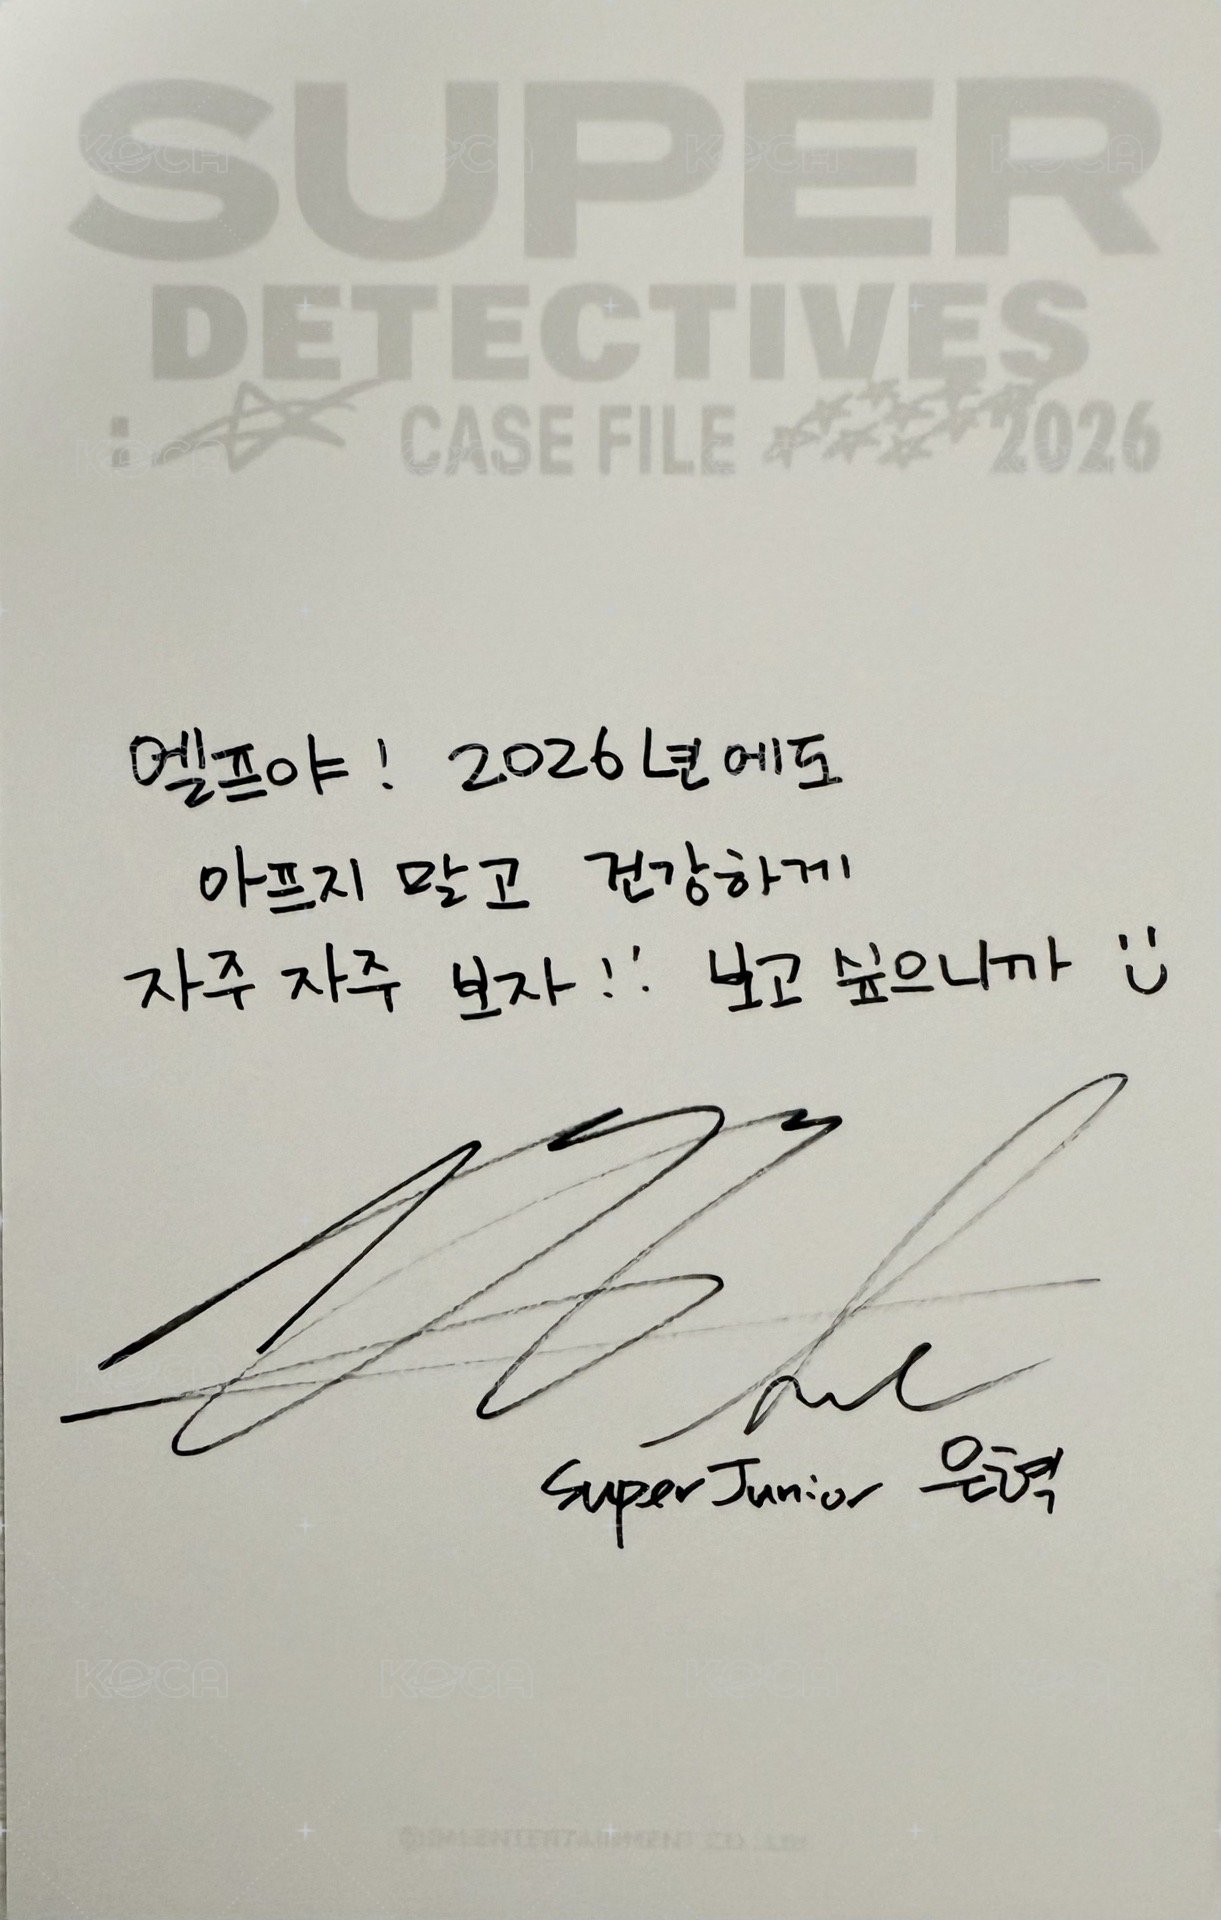 SUPER
DETECTIVES
: CASE FILE 2026
엘프야! 2026년에도
아프지 말고 건강하게
자주 자주 보자!! 보고 싶으니까 :)
Super Junior 은혁
KOCA KOCA KOCA